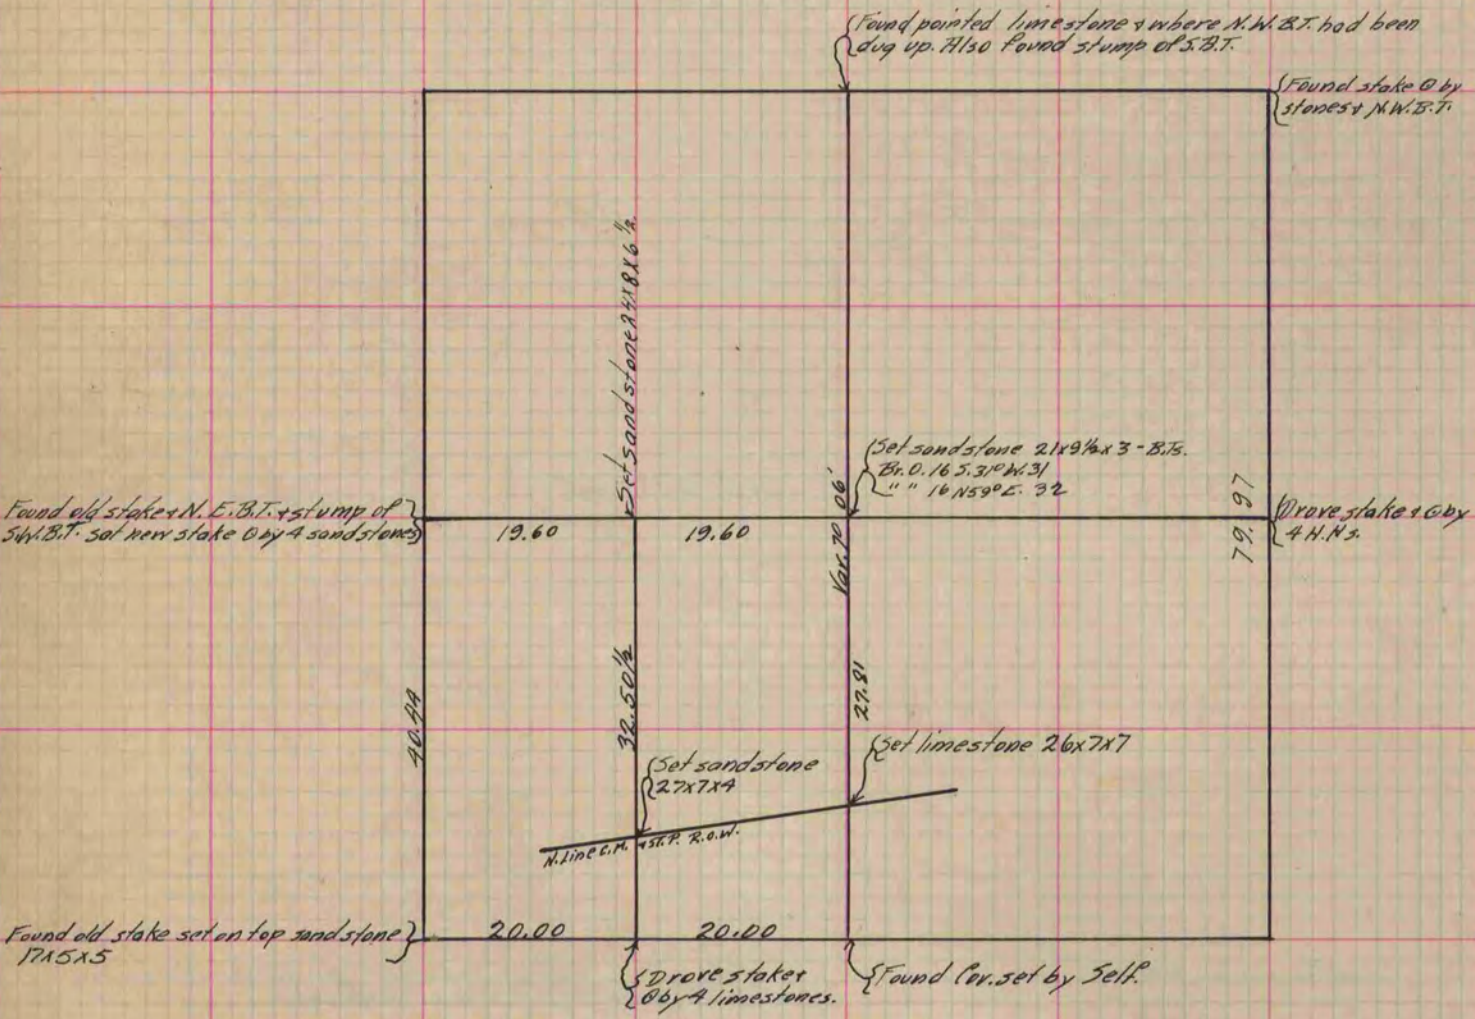 Found pointed limestone & where N.W.B.T. had been
dug up. Also found stump of S.B.T.
Found stake ⊙ by
stones & N.W.B.T.
Set sandstone 24x8x6½
Set sandstone 21x9½x3 - B.Ts.
Br.O. 16 S.31°W. 31
" " 16 N59°E. 32
Found old stake & N.E.B.T. & stump of
S.W.B.T. set new stake ⊙ by 4 sandstones
19.60
19.60
Var. 7° 06'
79.97
Drove stake & ⊙ by
4 H.Hs.
40.44
32.50½
27.81
Set sandstone
27x7x4
Set limestone 26x7x7
N. Line C.M. & St.P. R.O.W.
Found old stake set on top sandstone
17x5x5
20.00
20.00
Drove stake &
⊙ by 4 limestones.
Found Cor. set by Self.